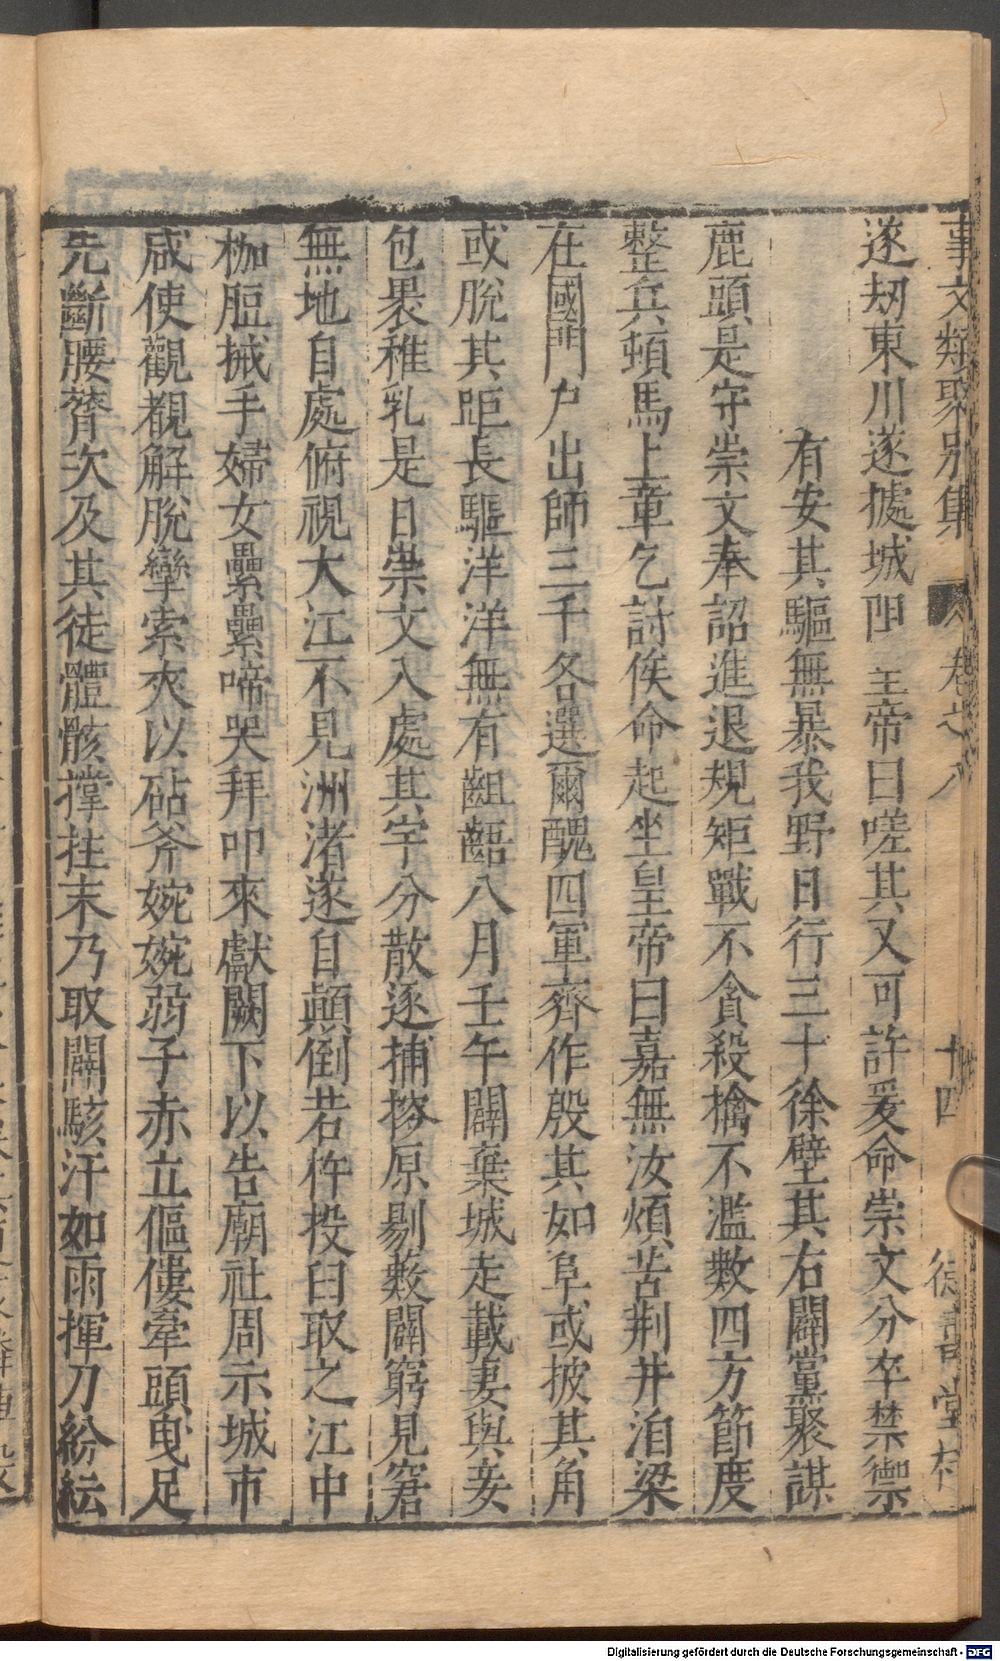 事文類聚別集 卷之八 十四 德壽堂梓
遂刼東川遂㨿城阻 皇帝曰嗟其又可許爰命崇文分卒禁禦
有安其驅無暴我野日行三十徐壁其右闢黨聚謀
鹿頭是守崇文奉詔進退規矩戰不貪殺擒不濫數四方節度
整兵頓馬上章乞討俟命起坐皇帝曰嘉無汝煩苦荆并洎梁
在國門戶出師三千各選爾醜四軍齊作殷其如阜或披其角
或脫其距長驅洋洋無有齟齬八月壬午闢棄城走載妻與妾
包裹稚乳是日崇文入處其宇分散逐捕搜原剔藪闢窮見窘
無地自處俯視大江不見洲渚遂自顛倒若杵投臼取之江中
枷脰械手婦女纍纍啼哭拜叩來獻闕下以告廟社周示城市
咸使觀覩解脫攣索夾以砧斧婉婉弱子赤立傴僂牽頭曳足
先斷腰膂次及其徒體骸撐拄末乃取闢駭汗如雨揮刀紛紜
Digitalisierung gefördert durch die Deutsche Forschungsgemeinschaft - DFG